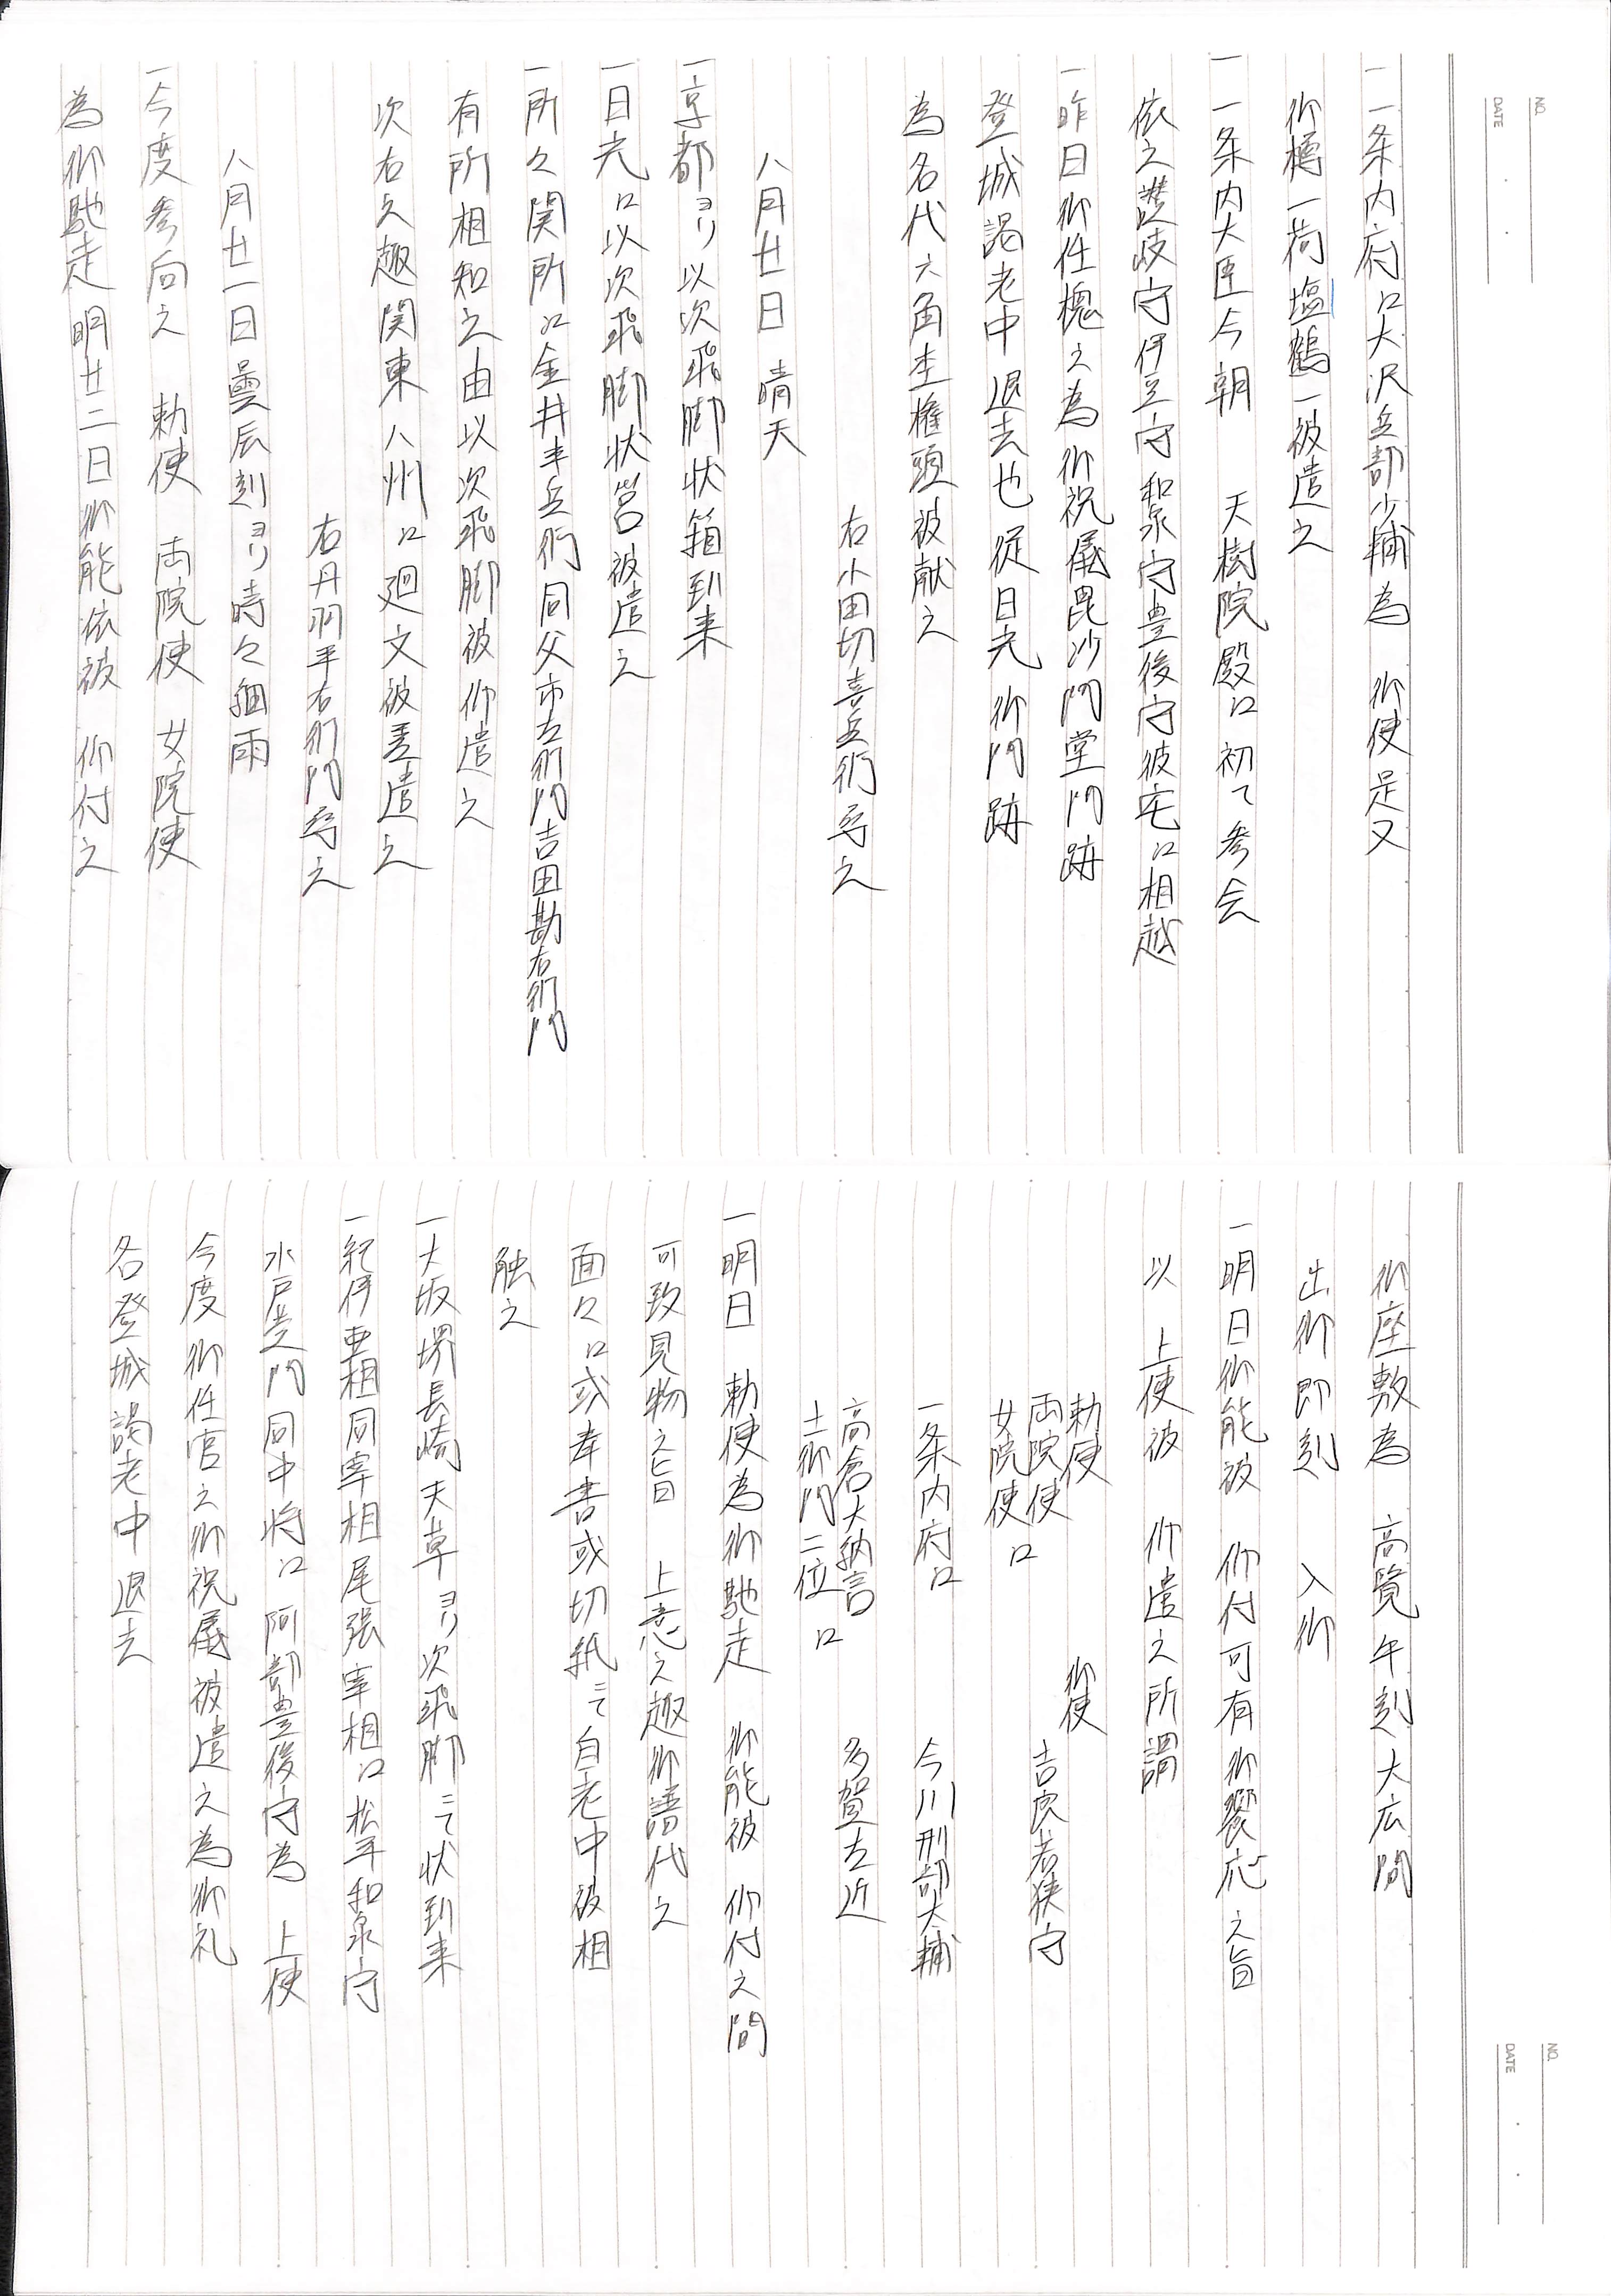 一一条内府江大沢兵部少輔為　御使是又
御樽一荷塩鶴一被遣之
一一条内大臣今朝　天樹院殿江初て参会
依之讃岐守伊豆守和泉守豊後守彼宅江相越
一昨日御任槐之為御祝儀毘沙門堂門跡
登城謁老中退去也従日光御門跡
為名代六角杢権頭被献之
右小田切喜兵衛承之
八月廿日　晴天
一京都ヨリ以次飛脚状箱到来
一日光江以次飛脚状筥被遣之
一所々関所江金井半兵衛同父市左衛門吉田勘右衛門
有所相知之由以次飛脚被仰遣之
次右之趣関東八州江廻文被差遣之
右丹羽平右衛門承之
八月廿一日曇辰刻ヨリ時々細雨
一今度参向之　勅使　両院使　女院使
為御馳走明廿二日御能依被　仰付之
御座敷為　高覧午刻大広間
出御即刻　入御
一明日御能被　仰付可有御饗応之旨
以　上使被　仰遣之所謂
御使
勅使
両院使　吉良若狭守
女院使江
一条内府江　今川刑部大輔
高倉大納言　多賀左近
土御門二位江
一明日　勅使為御馳走　御能被　仰付之間
可致見物之旨　上意之趣御譜代之
面々江或奉書或切紙ニて自老中被相
触之
一大坂堺長崎天草ヨリ次飛脚ニて状到来
一紀伊亜相同宰相尾張宰相江松平和泉守
水戸黄門同中将江阿部豊後守為　上使
今度御任官之御祝儀被遣之為御礼
各登城謁老中退去
NO.
DATE
NO.
DATE